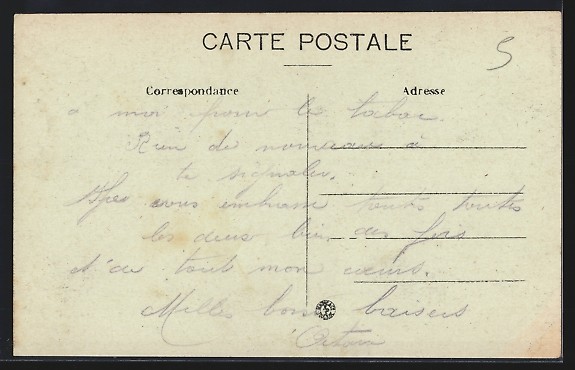 CARTE POSTALE
5
Correspondance Adresse
a moi pour le tabac.
Rien de nouveaux à
te signaler.
vous embrasse toutes toutes
les deux bien des fois
et de tout mon cœurs.
Milles bons baisers